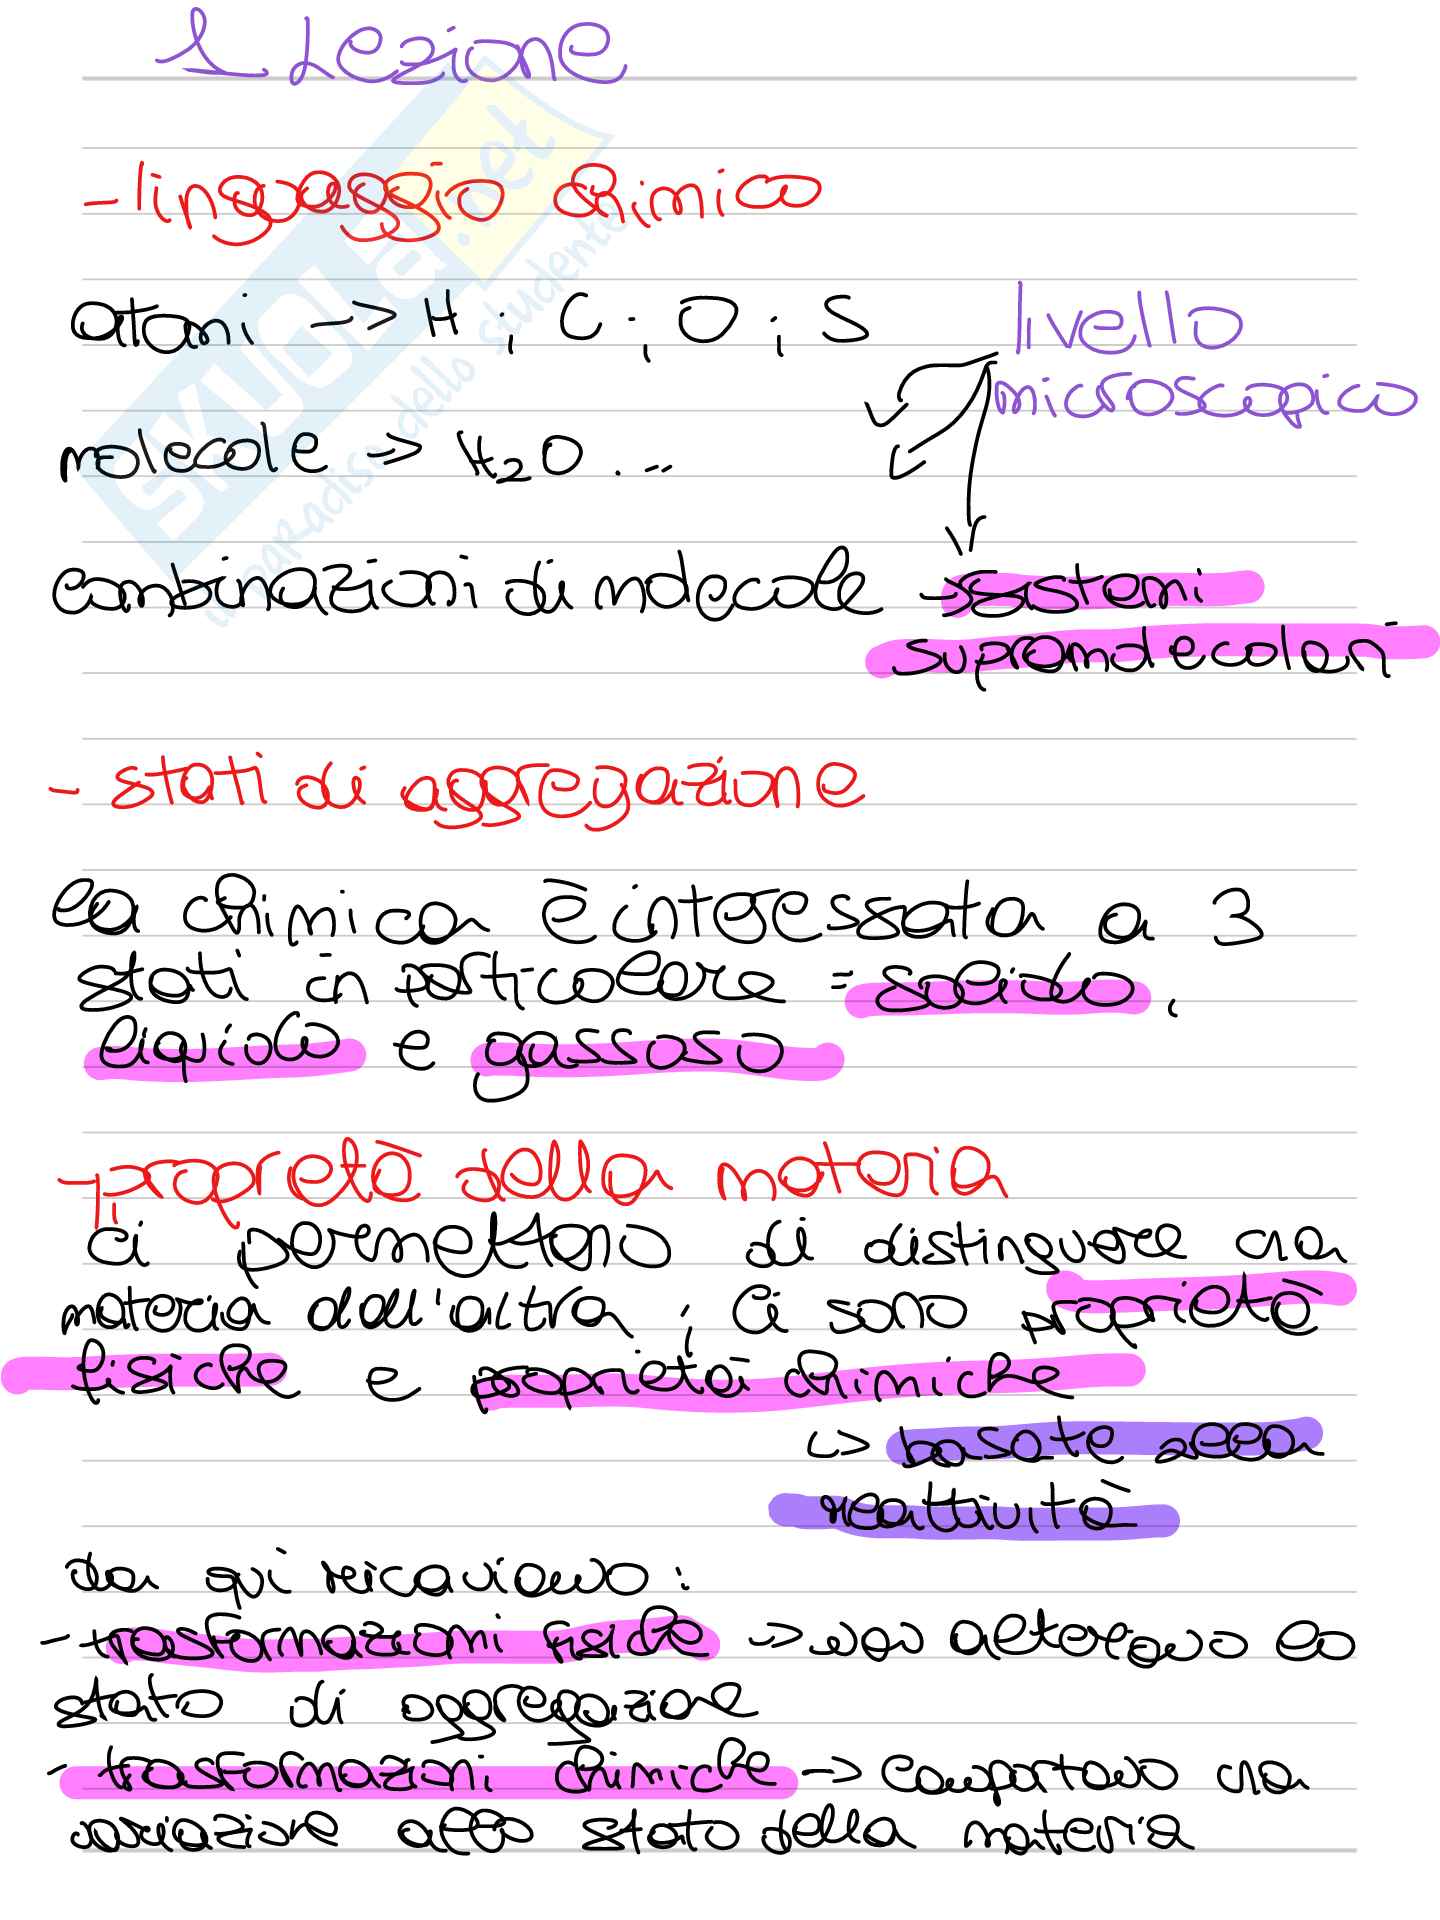 1 Lezione
- linguaggio chimico
atomi -> H ; C ; O ; S
livello
microscopico
molecole -> H₂O ...
combinazioni di molecole -> sistemi
supramolecolari
- stati di aggregazione
la chimica è interessata a 3
stati in particolare = solido,
liquido e gassoso
- proprietà della materia
ci permettono di distinguere una
materia dall'altra ; ci sono proprietà
fisiche e proprietà chimiche
↳ basate sulla
reattività
da qui ricaviamo :
- trasformazioni fisiche -> non alterano lo
stato di aggregazione
- trasformazioni chimiche -> comportano una
variazione allo stato della materia
SKUOLA.net
il paradiso dello studente